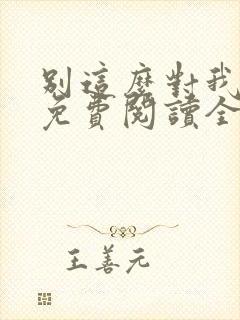 別這麼對我
免費閱讀全
王善元